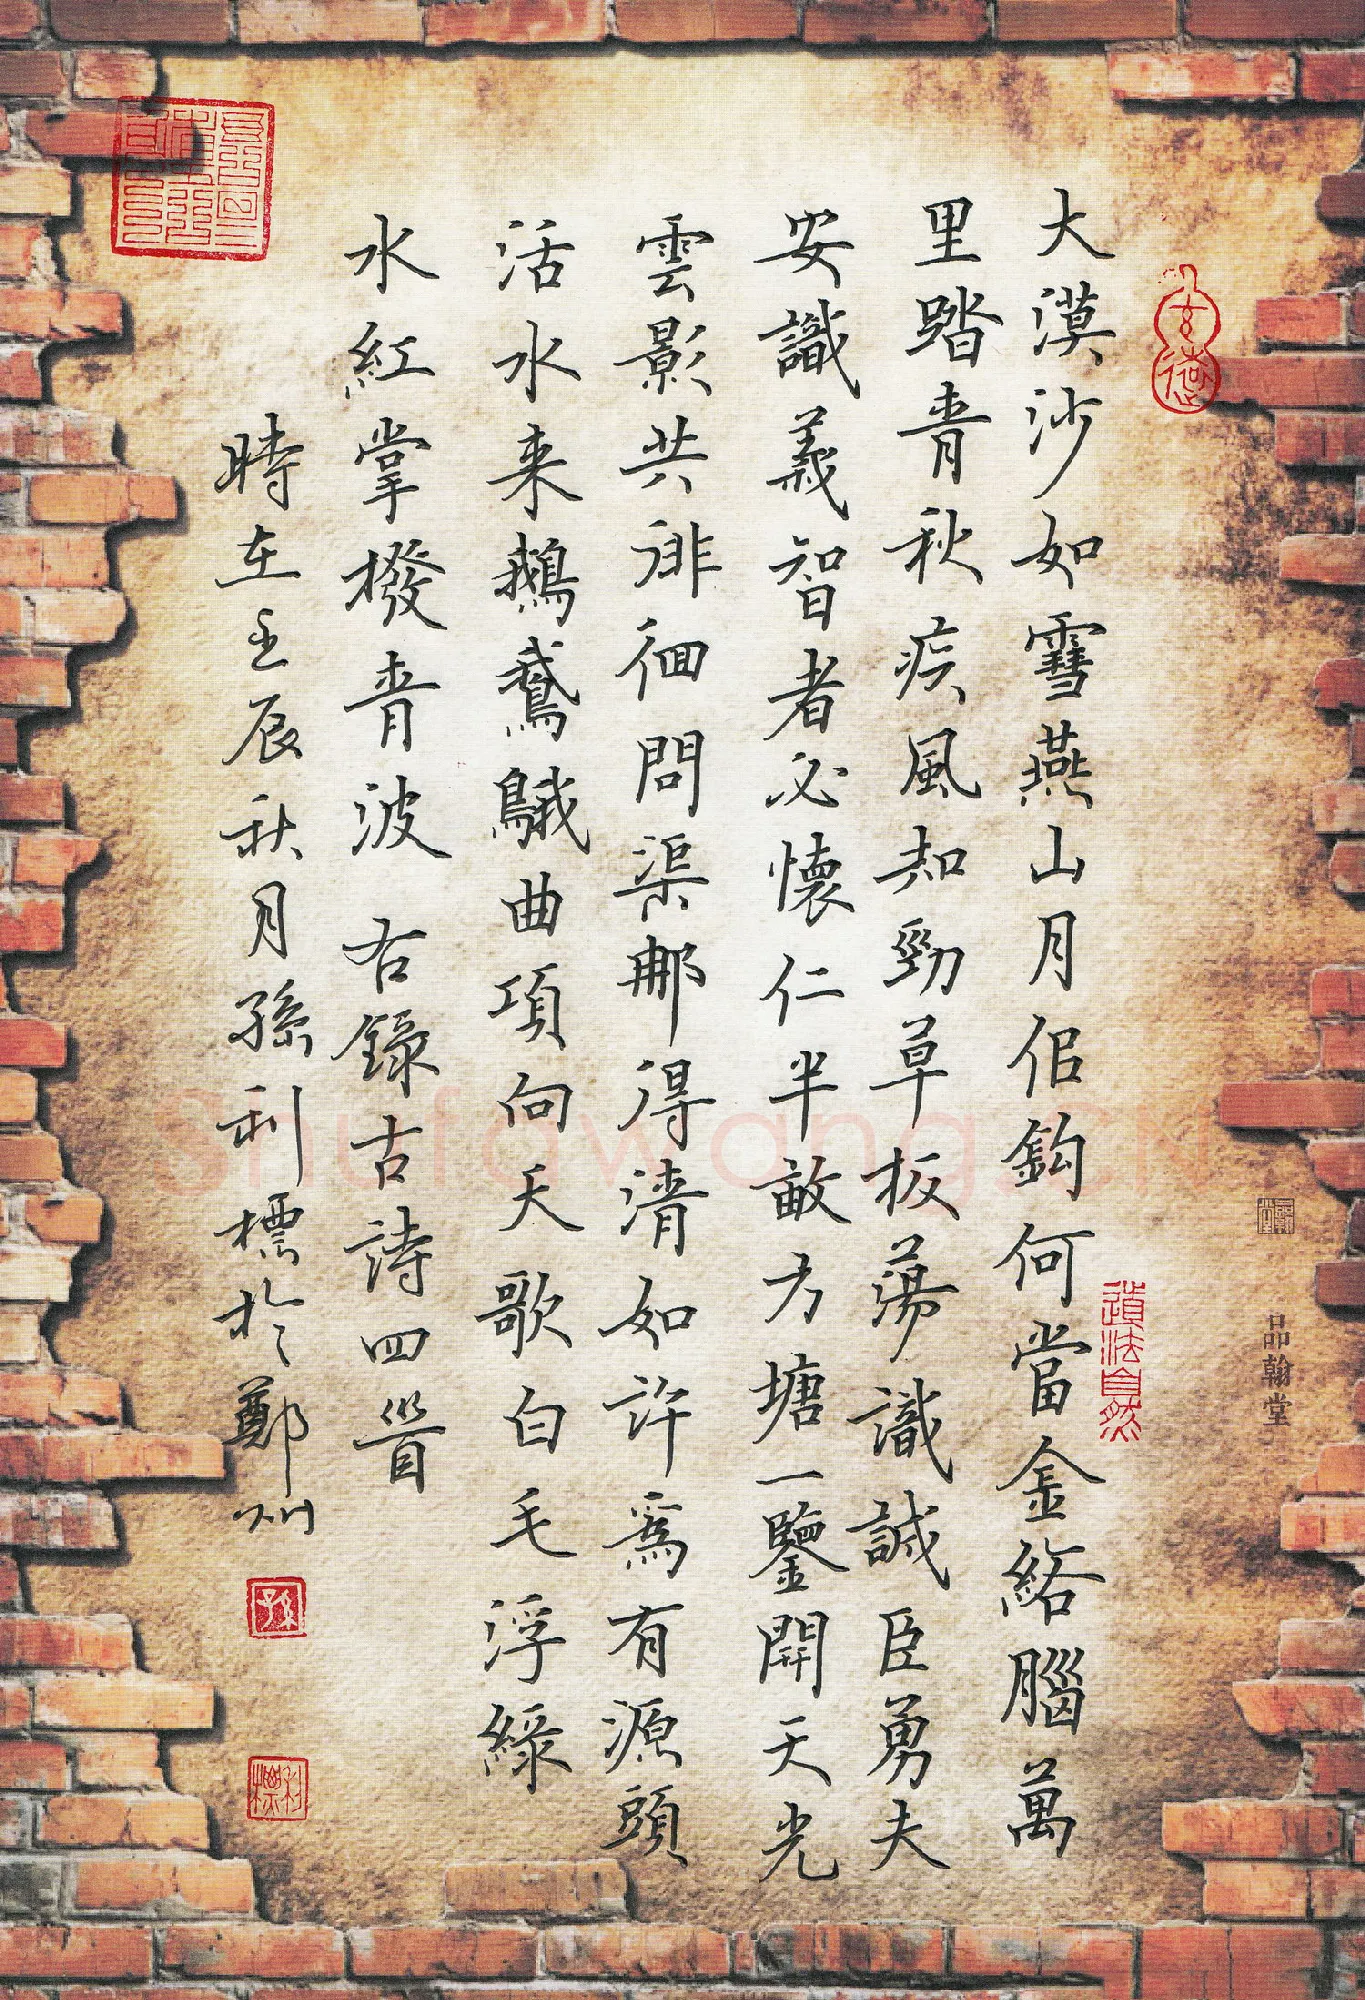 大漠沙如雪燕山月佀鈎何當金絡腦萬
里踏青秋疾風知勁草板蕩識誠臣勇夫
安識義智者必懷仁半畝方塘一鑒開天光
雲影共徘徊問渠那得清如許為有源頭
活水来鵝鵞䳘曲項向天歌白毛浮綠
水紅掌撥青波 右錄古詩四首
時在壬辰秋月孫利標於鄭州
道法自然
品翰堂
孫
利標
Shufawang.CN